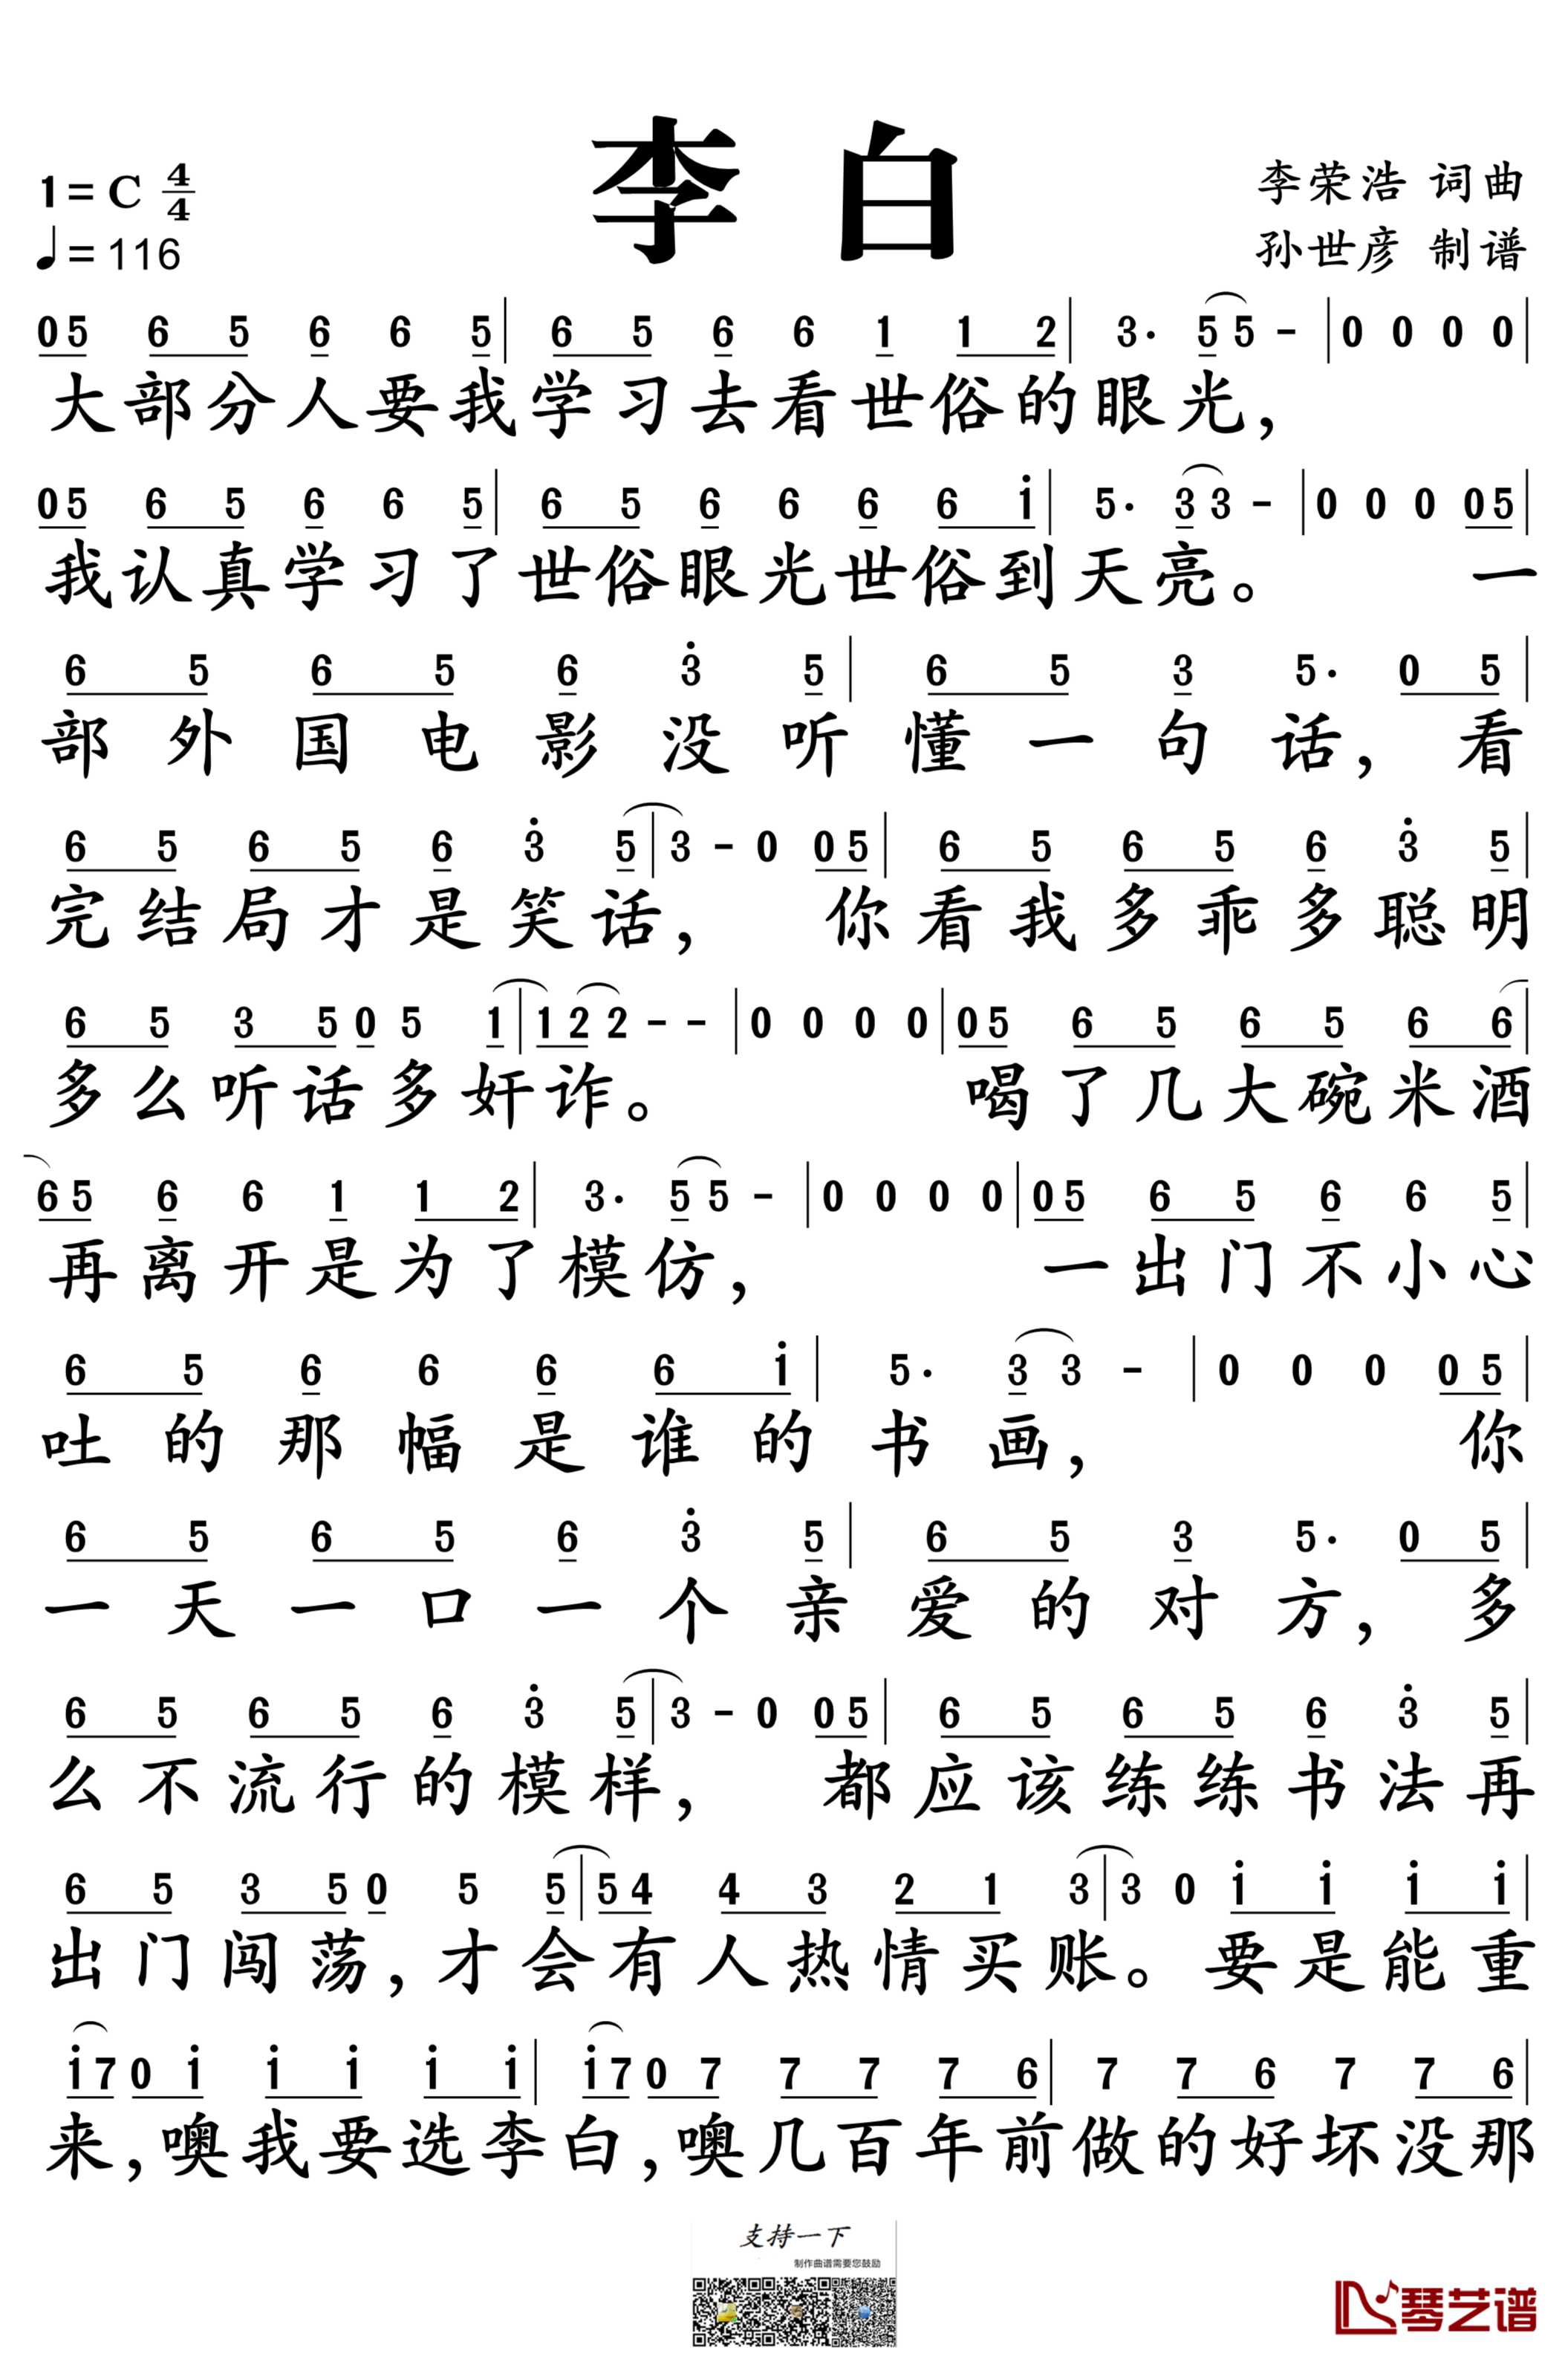 李白
1=C 4/4
♩=116
李荣浩 词曲
孙世彦 制谱
05 6 5 6 6 5| 6 5 6 6 1 1 2| 3· 55 - |0 0 0 0|
大部分人要我学习去看世俗的眼光，
05 6 5 6 6 5| 6 5 6 6 6 6 i| 5· 33 - |0 0 0 05|
我认真学习了世俗眼光世俗到天亮。 一
6 5 6 5 6 3̇ 5| 6 5 3 5· 0 5|
部外国电影没听懂一句话，看
6 5 6 5 6 3̇ 5|3 - 0 05| 6 5 6 5 6 3̇ 5|
完结局才是笑话， 你看我多乖多聪明
6 5 3 5 0 5 1|1 2 2 - - |0 0 0 0|05 6 5 6 5 6 6|
多么听话多奸诈。 喝了几大碗米酒
65 6 6 1 1 2| 3· 55 - |0 0 0 0|05 6 5 6 6 5|
再离开是为了模仿， 一出门不小心
6 5 6 6 6 6 i| 5· 3 3 - |0 0 0 0 5|
吐的那幅是谁的书画， 你
6 5 6 5 6 3̇ 5| 6 5 3 5· 0 5|
一天一口一个亲爱的对方，多
6 5 6 5 6 3̇ 5|3 - 0 05| 6 5 6 5 6 3̇ 5|
么不流行的模样， 都应该练练书法再
6 5 3 5 0 5 5|5 4 4 3 2 1 3|3 0 i i i i|
出门闯荡，才会有人热情买账。要是能重
i7 0 i i i i i| i7 0 7 7 7 7 6| 7 7 6 7 7 6|
来，噢我要选李白，噢几百年前做的好坏没那
支持一下
制作曲谱需要您鼓励
琴艺谱